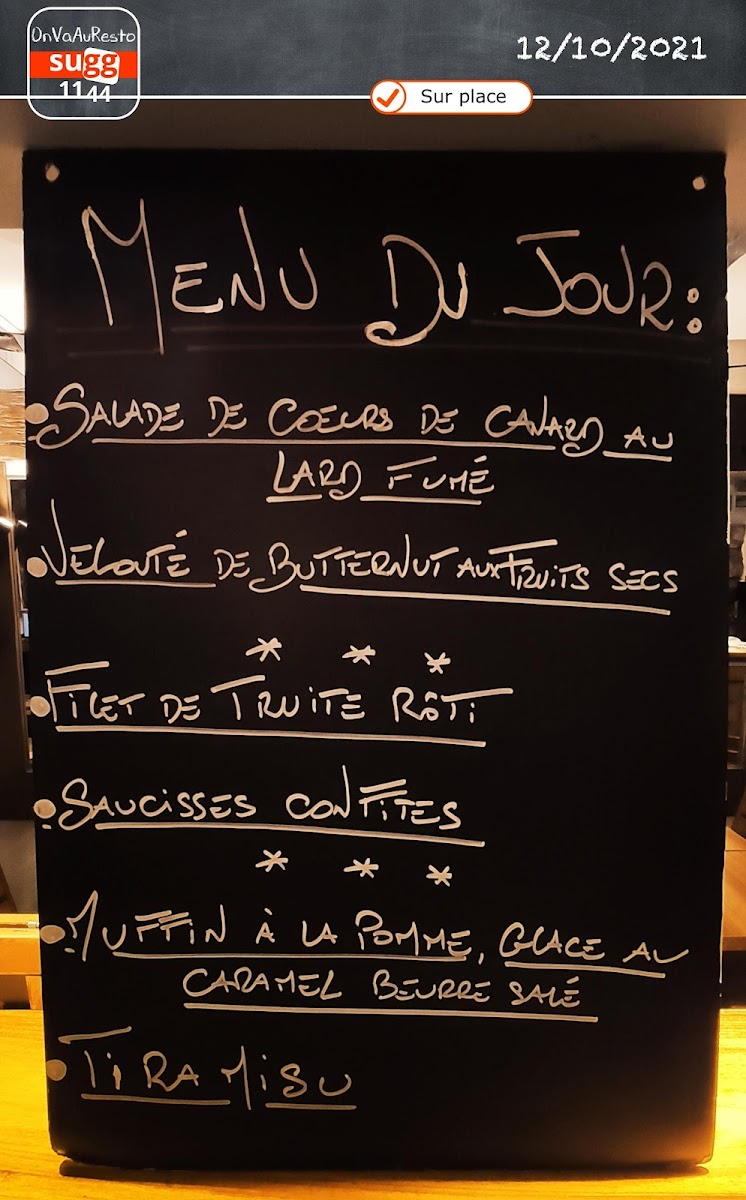 OnVaAuResto
sugg
1144
12/10/2021
Sur place
MENU DU JOUR:
SALADE DE CŒURS DE CANARD AU
LARD FUMÉ
VELOUTÉ DE BUTTERNUT AUX FRUITS SECS
* * *
FILET DE TRUITE RÔTI
SAUCISSES CONFITES
* * *
MUFFIN À LA POMME, GLACE AU
CARAMEL BEURRE SALÉ
TIRAMISU